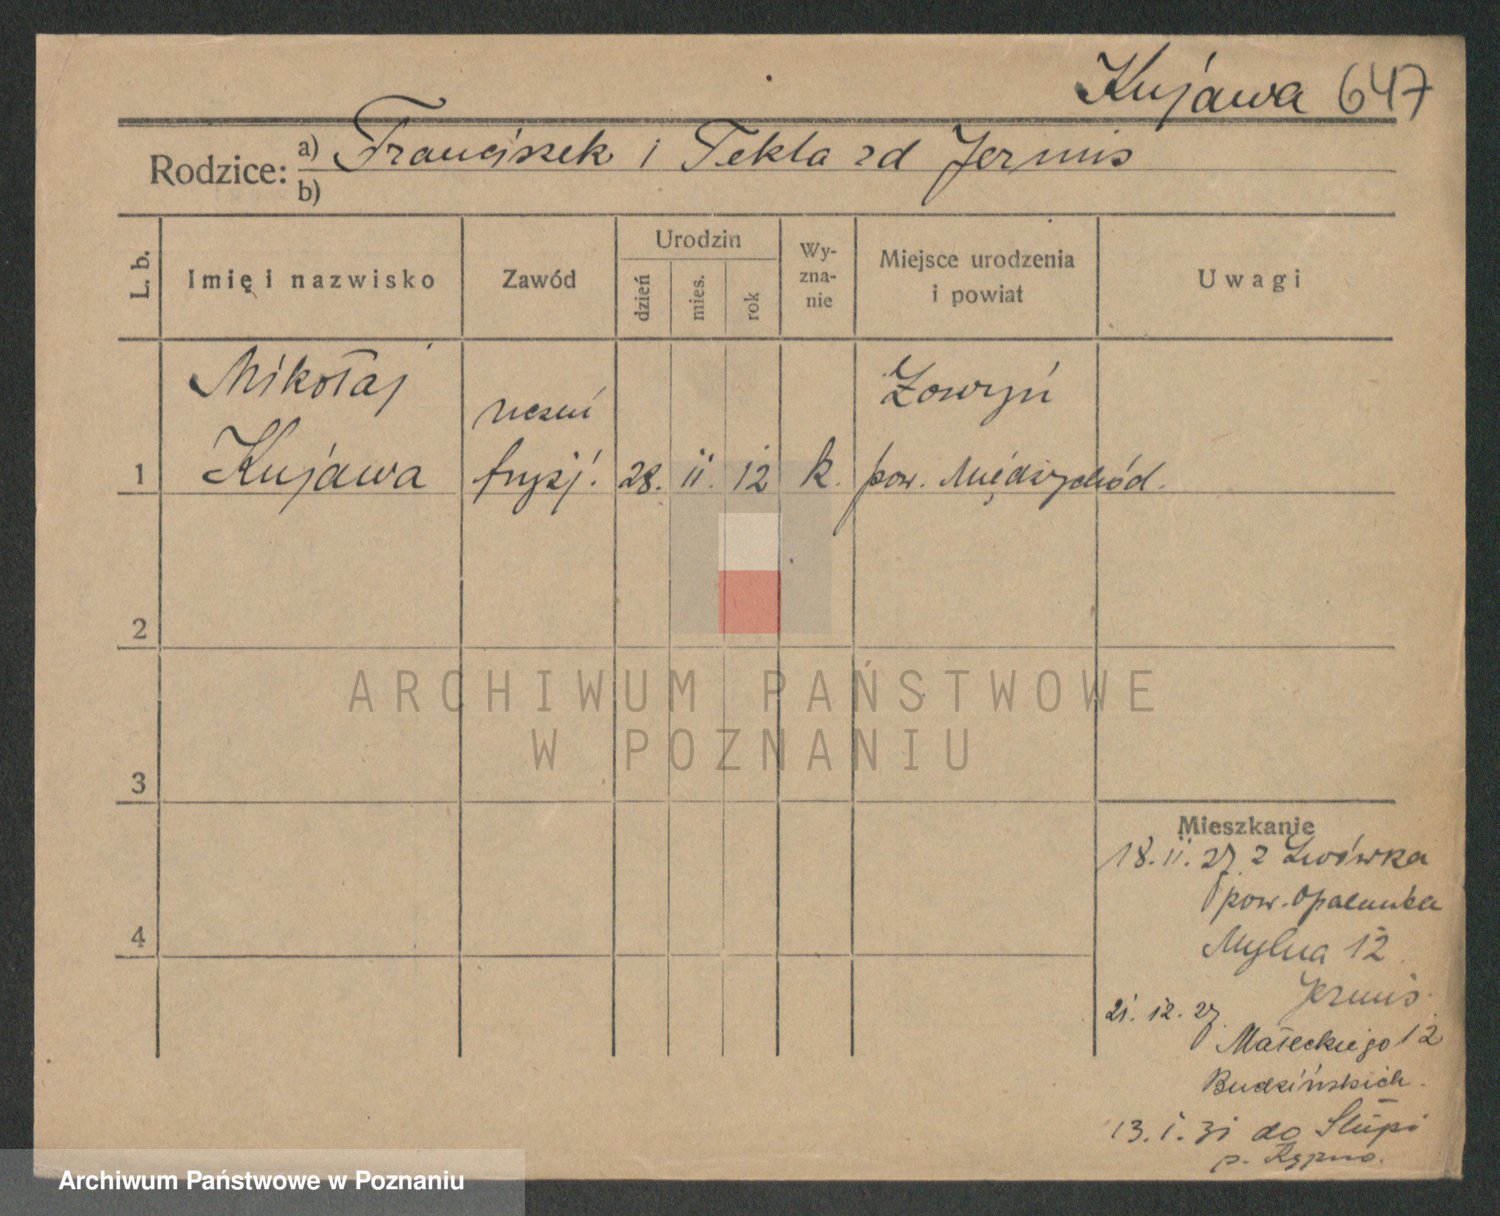 Kujawa 647
Rodzice: a) Franciszek i Tekla zd Jermis
b)
L. b.
Imię i nazwisko
Zawód
Urodzin
dzień
mies.
rok
Wy-
zna-
nie
Miejsce urodzenia
i powiat
Uwagi
Mikołaj
Kujawa
uczeń
fryzj.
1
28. II. 12
k.
pow. Międzychód.
2
3
4
Mieszkanie
18. II. 27 z Lwówka
pow. Opalenica
Mylna 12
Jermis.
21. 12. 27
Małeckiego 12
Budzińskich.
13. I. 31 do Słupi
p. Kępno.
ARCHIWUM PAŃSTWOWE
W POZNANIU
Archiwum Państwowe w Poznaniu